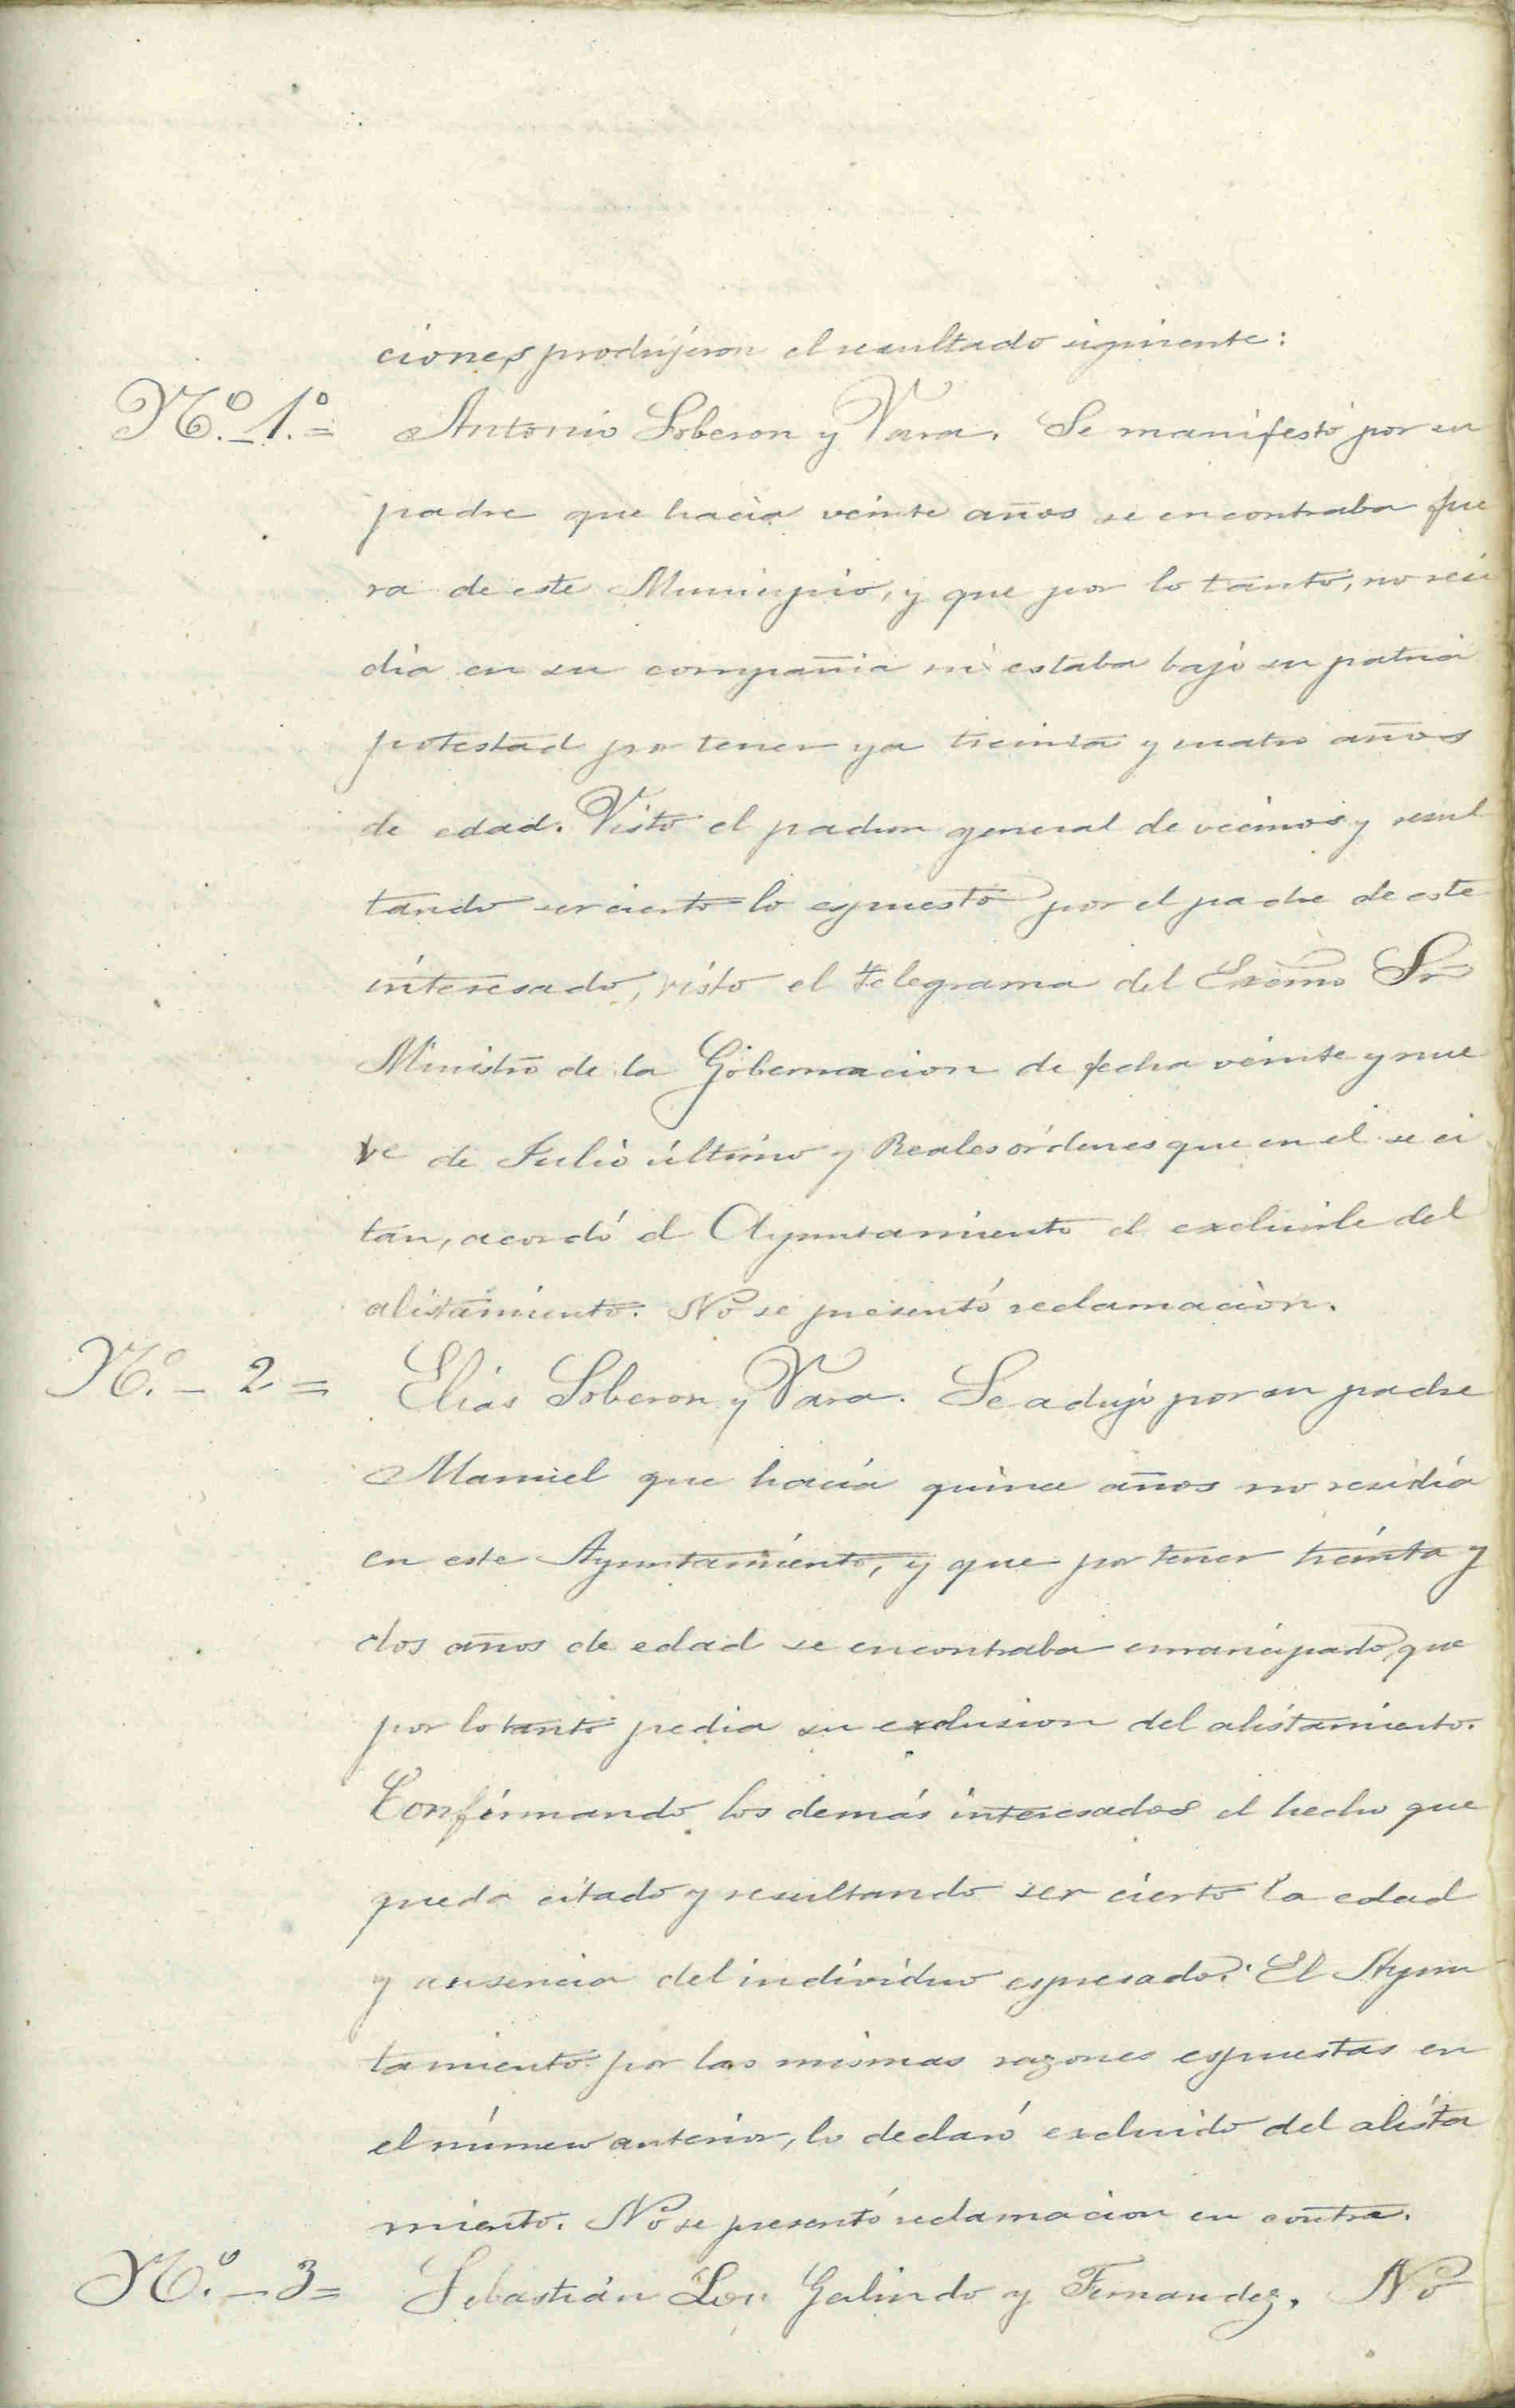 ciones, produjeron el resultado siguiente:
Nº. 1.º = Antonio Soberon y Vara. Se manifestó por su
padre que hacia veinte años se encontraba fue
ra de este Municipio, y que por lo tanto, no resi
dia en su compañia ni estaba bajo su patria
potestad por tener ya treinta y cuatro años
de edad. Visto el padron general de vecinos y resul
tando ser cierto lo espuesto por el padre de este
interesado, visto el telegrama del Excmo Sr
Ministro de la Gobernacion de fecha veinte y nue
ve de Julio último y Reales órdenes que en el se ci
tan, acordó el Ayuntamiento el excluirle del
alistamiento. No se presentó reclamacion.
Nº. - 2 = Elias Soberon y Vara. Se adujo por su padre
Manuel que hacía quince años no residia
en este Ayuntamiento, y que por tener treinta y
dos años de edad se encontraba emancipado, que
por lo tanto pedia su exclusion del alistamiento.
Confirmando los demás interesados el hecho que
queda citado y resultando ser cierto la edad
y ausencia del individuo espresado. El Ayun
tamiento por las mismas razones espuestas en
el número anterior, lo declaró excluido del alista
miento. No se presentó reclamacion en contra.
Nº. - 3 = Sebastián Galindo y Fernandez. No